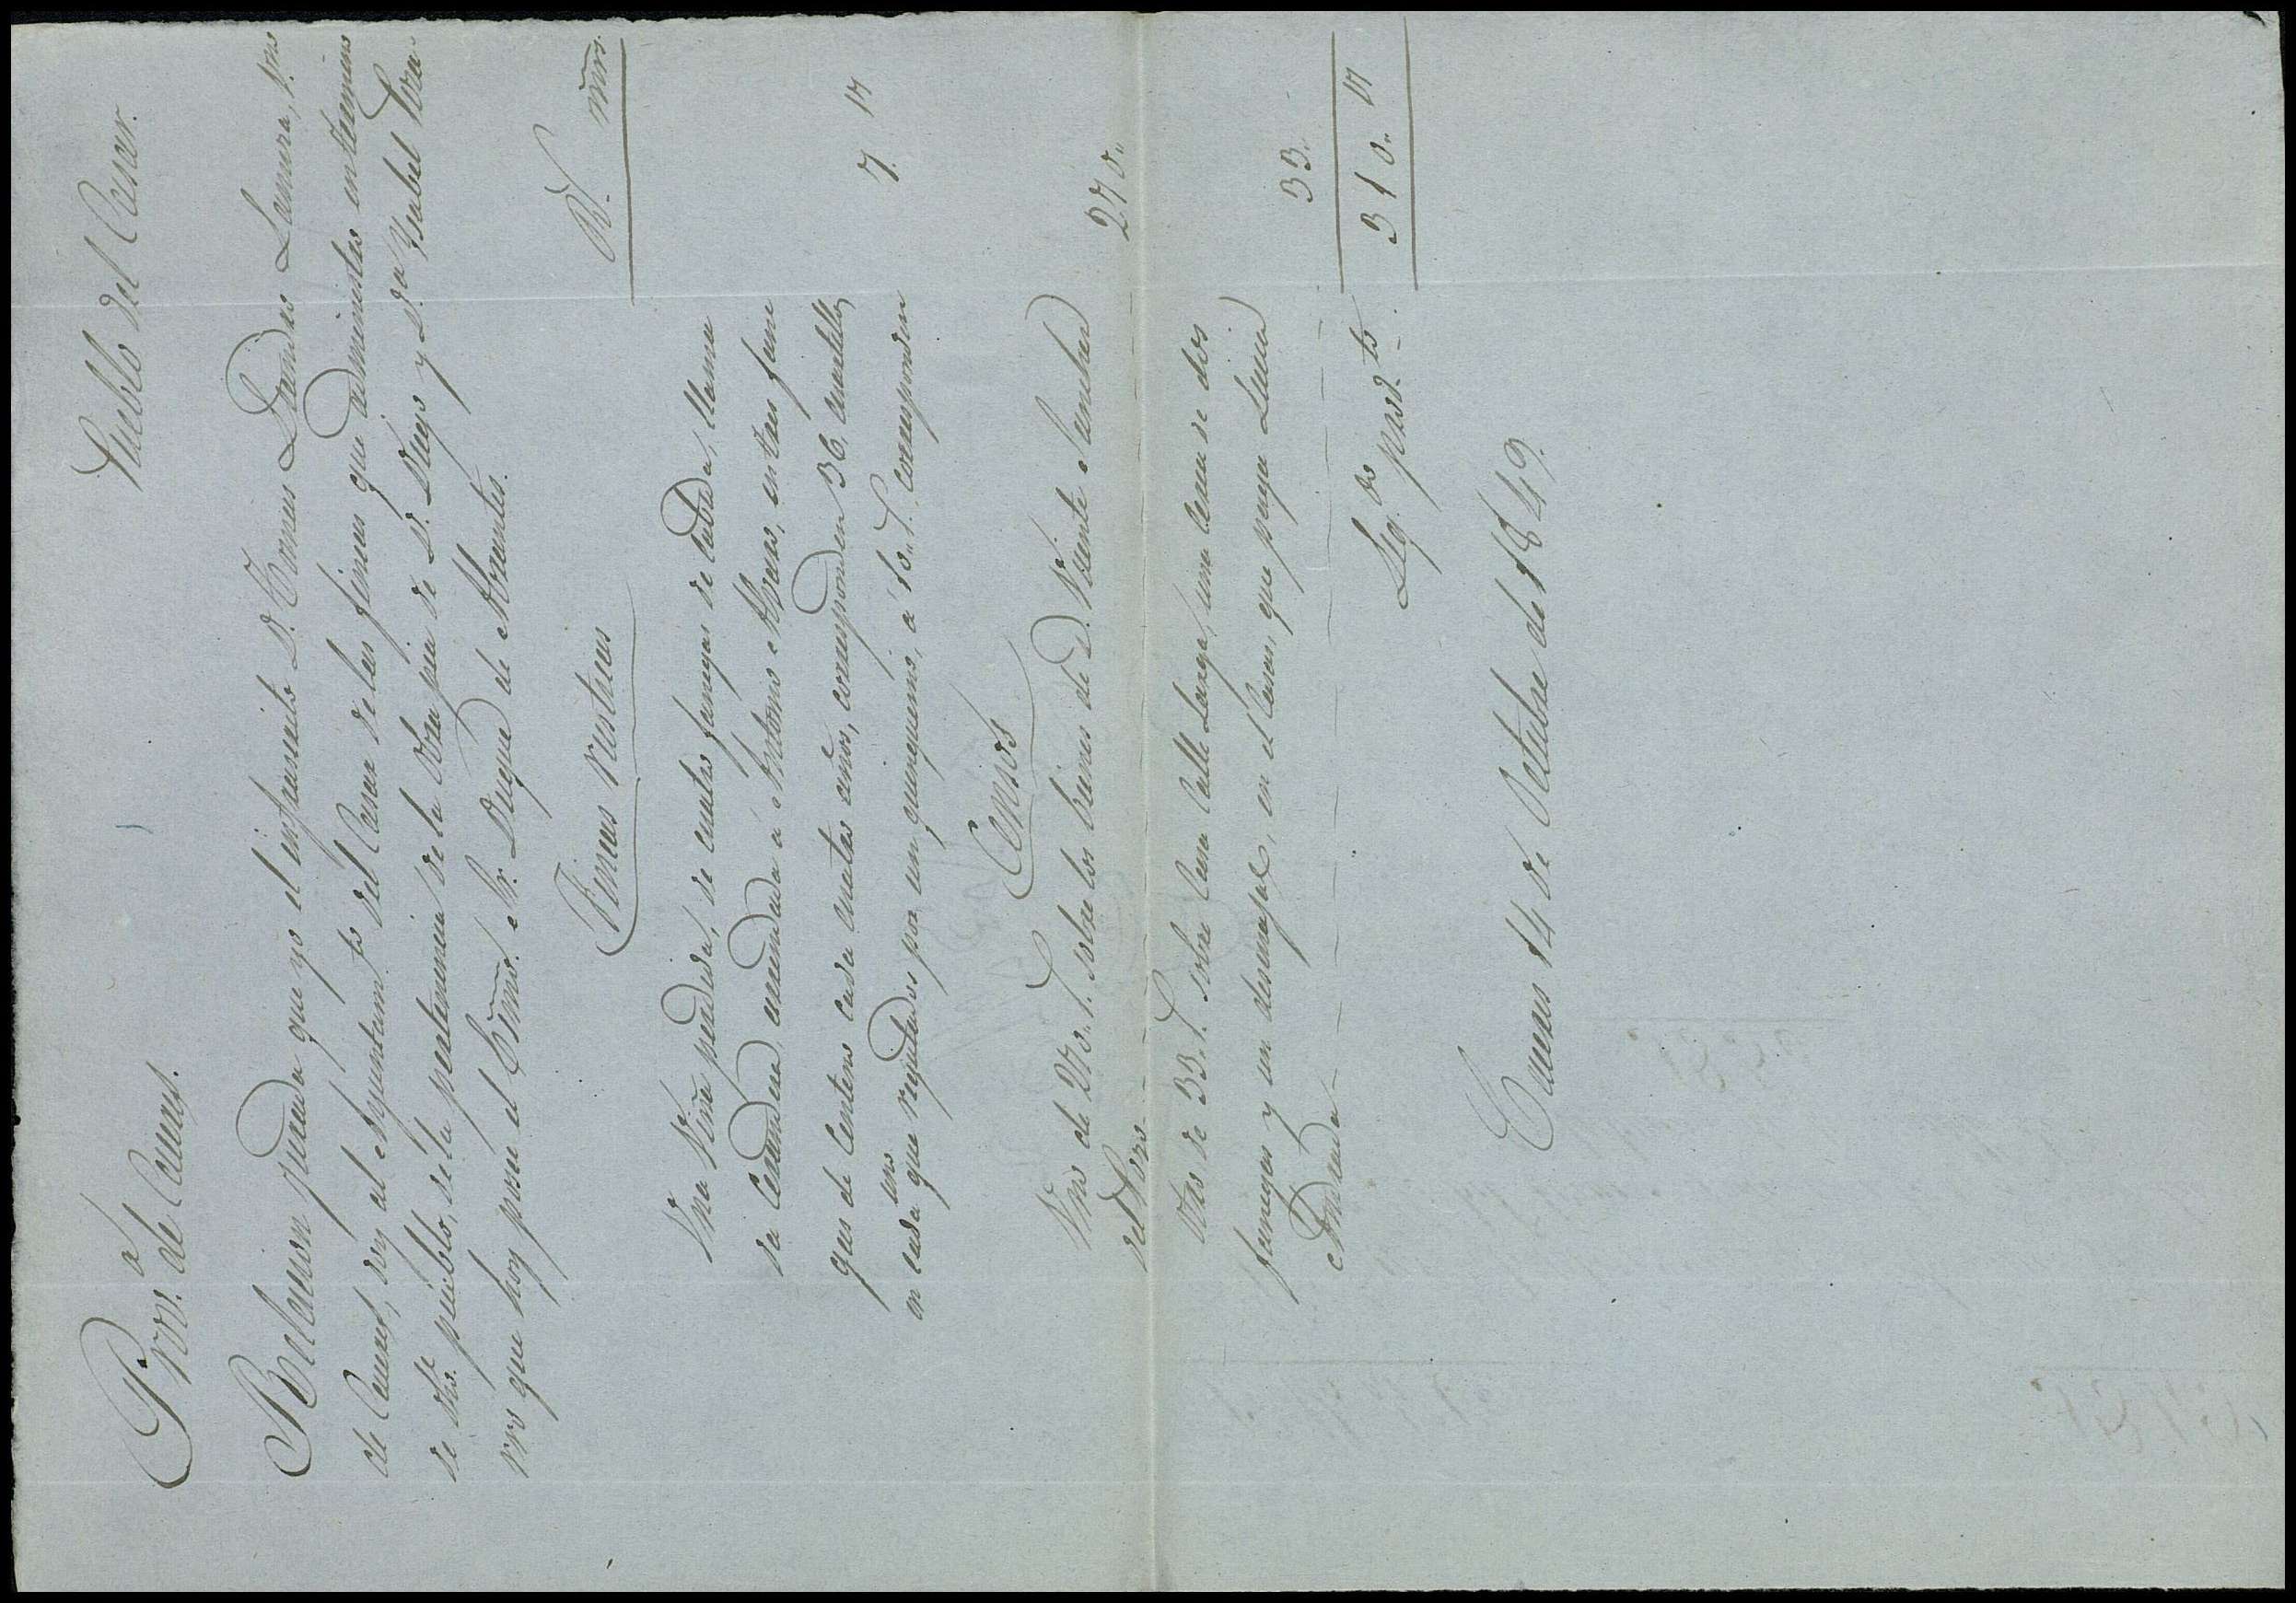 Prov.ª de Caceres. Pueblo del Casar.
Relacion jurada que yo el infrascrito D. Tomas Damas Lamora, v.no
de Caceres, doy al Ayuntam.to del Casar de las fincas que administro en terminos
de dho. pueblo, de la pertenencia de la Obra pia de D. Diego y D.ª Ysabel
que hoy posee el Exmo. Sr. Duque de Abrantes.
Rs. mrs.
Fincas rusticas
Una Viña perdida, de cuatro fanegas de Cabida, llama
da arrendada a Antonio en tres fane
gas de Centeno cada cuatro años, corresponden 36 cuartillos
en cada uno que regulados por un quinquenio, a 10 rs. corresponden 7. 17
Censos
Uno de 270 rs. sobre los bienes de D. Vicente Sanchez
del Pozo 270..
Otro de 33 rs. sobre Casa Calle Larga, una Cerca de dos
fanegas y un desmonte, en el Casar, que paga Lucia
Andrada 33..
310.. 17
Caceres 14 de Octubre de 1849.